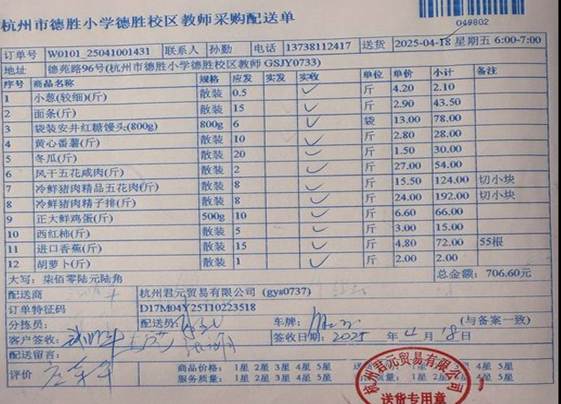 杭州市德胜小学德胜校区教师采购配送单
049802
订单号 W0101_25041001431 联系人 孙勤 电话 13738112417 送货 2025-04-18 星期五 6:00-7:00
地址 德苑路96号(杭州市德胜小学德胜校区教师 GSJY0733)
序号 商品名称 规格 应发 实发 实收 单位 单价 小计 备注
1 小葱(较细)(斤) 散装 0.5 ✓ 斤 4.20 2.10
2 面条(斤) 散装 15 ✓ 斤 2.90 43.50
3 袋装安井红糖馒头(800g) 800g 6 ✓ 袋 13.00 78.00
4 黄心番薯(斤) 散装 10 ✓ 斤 2.80 28.00
5 冬瓜(斤) 散装 20 ✓ 斤 1.50 30.00
6 风干五花咸肉(斤) 散装 2 ✓ 斤 27.00 54.00
7 冷鲜猪肉精品五花肉(斤) 散装 8 ✓ 斤 15.50 124.00 切小块
8 冷鲜猪肉精子排(斤) 散装 8 ✓ 斤 24.00 192.00 切小块
9 正大鲜鸡蛋(斤) 500g 10 ✓ 斤 6.60 66.00
10 西红柿(斤) 散装 5 ✓ 斤 3.00 15.00
11 进口香蕉(斤) 散装 15 ✓ 斤 4.80 72.00 55根
12 胡萝卜(斤) 散装 1 ✓ 斤 2.00 2.00
大写：柒佰零陆元陆角 总金额：706.60元
配送商 杭州君元贸易有限公司 (gys0737)
订单特征码 D17M04Y25110223518
分拣员： 配送员： 车牌： (与备案一致)
客户签收： 签收日期：2025 年 4 月 18 日
配送留言：
评价 商品价格： 1星 2星 3星 4星 5星 4星 5星
服务质量： 1星 2星 3星 4星 5星 质量： 1星 2星 3星 4星 5星
杭州君元贸易有限公司
送货专用章